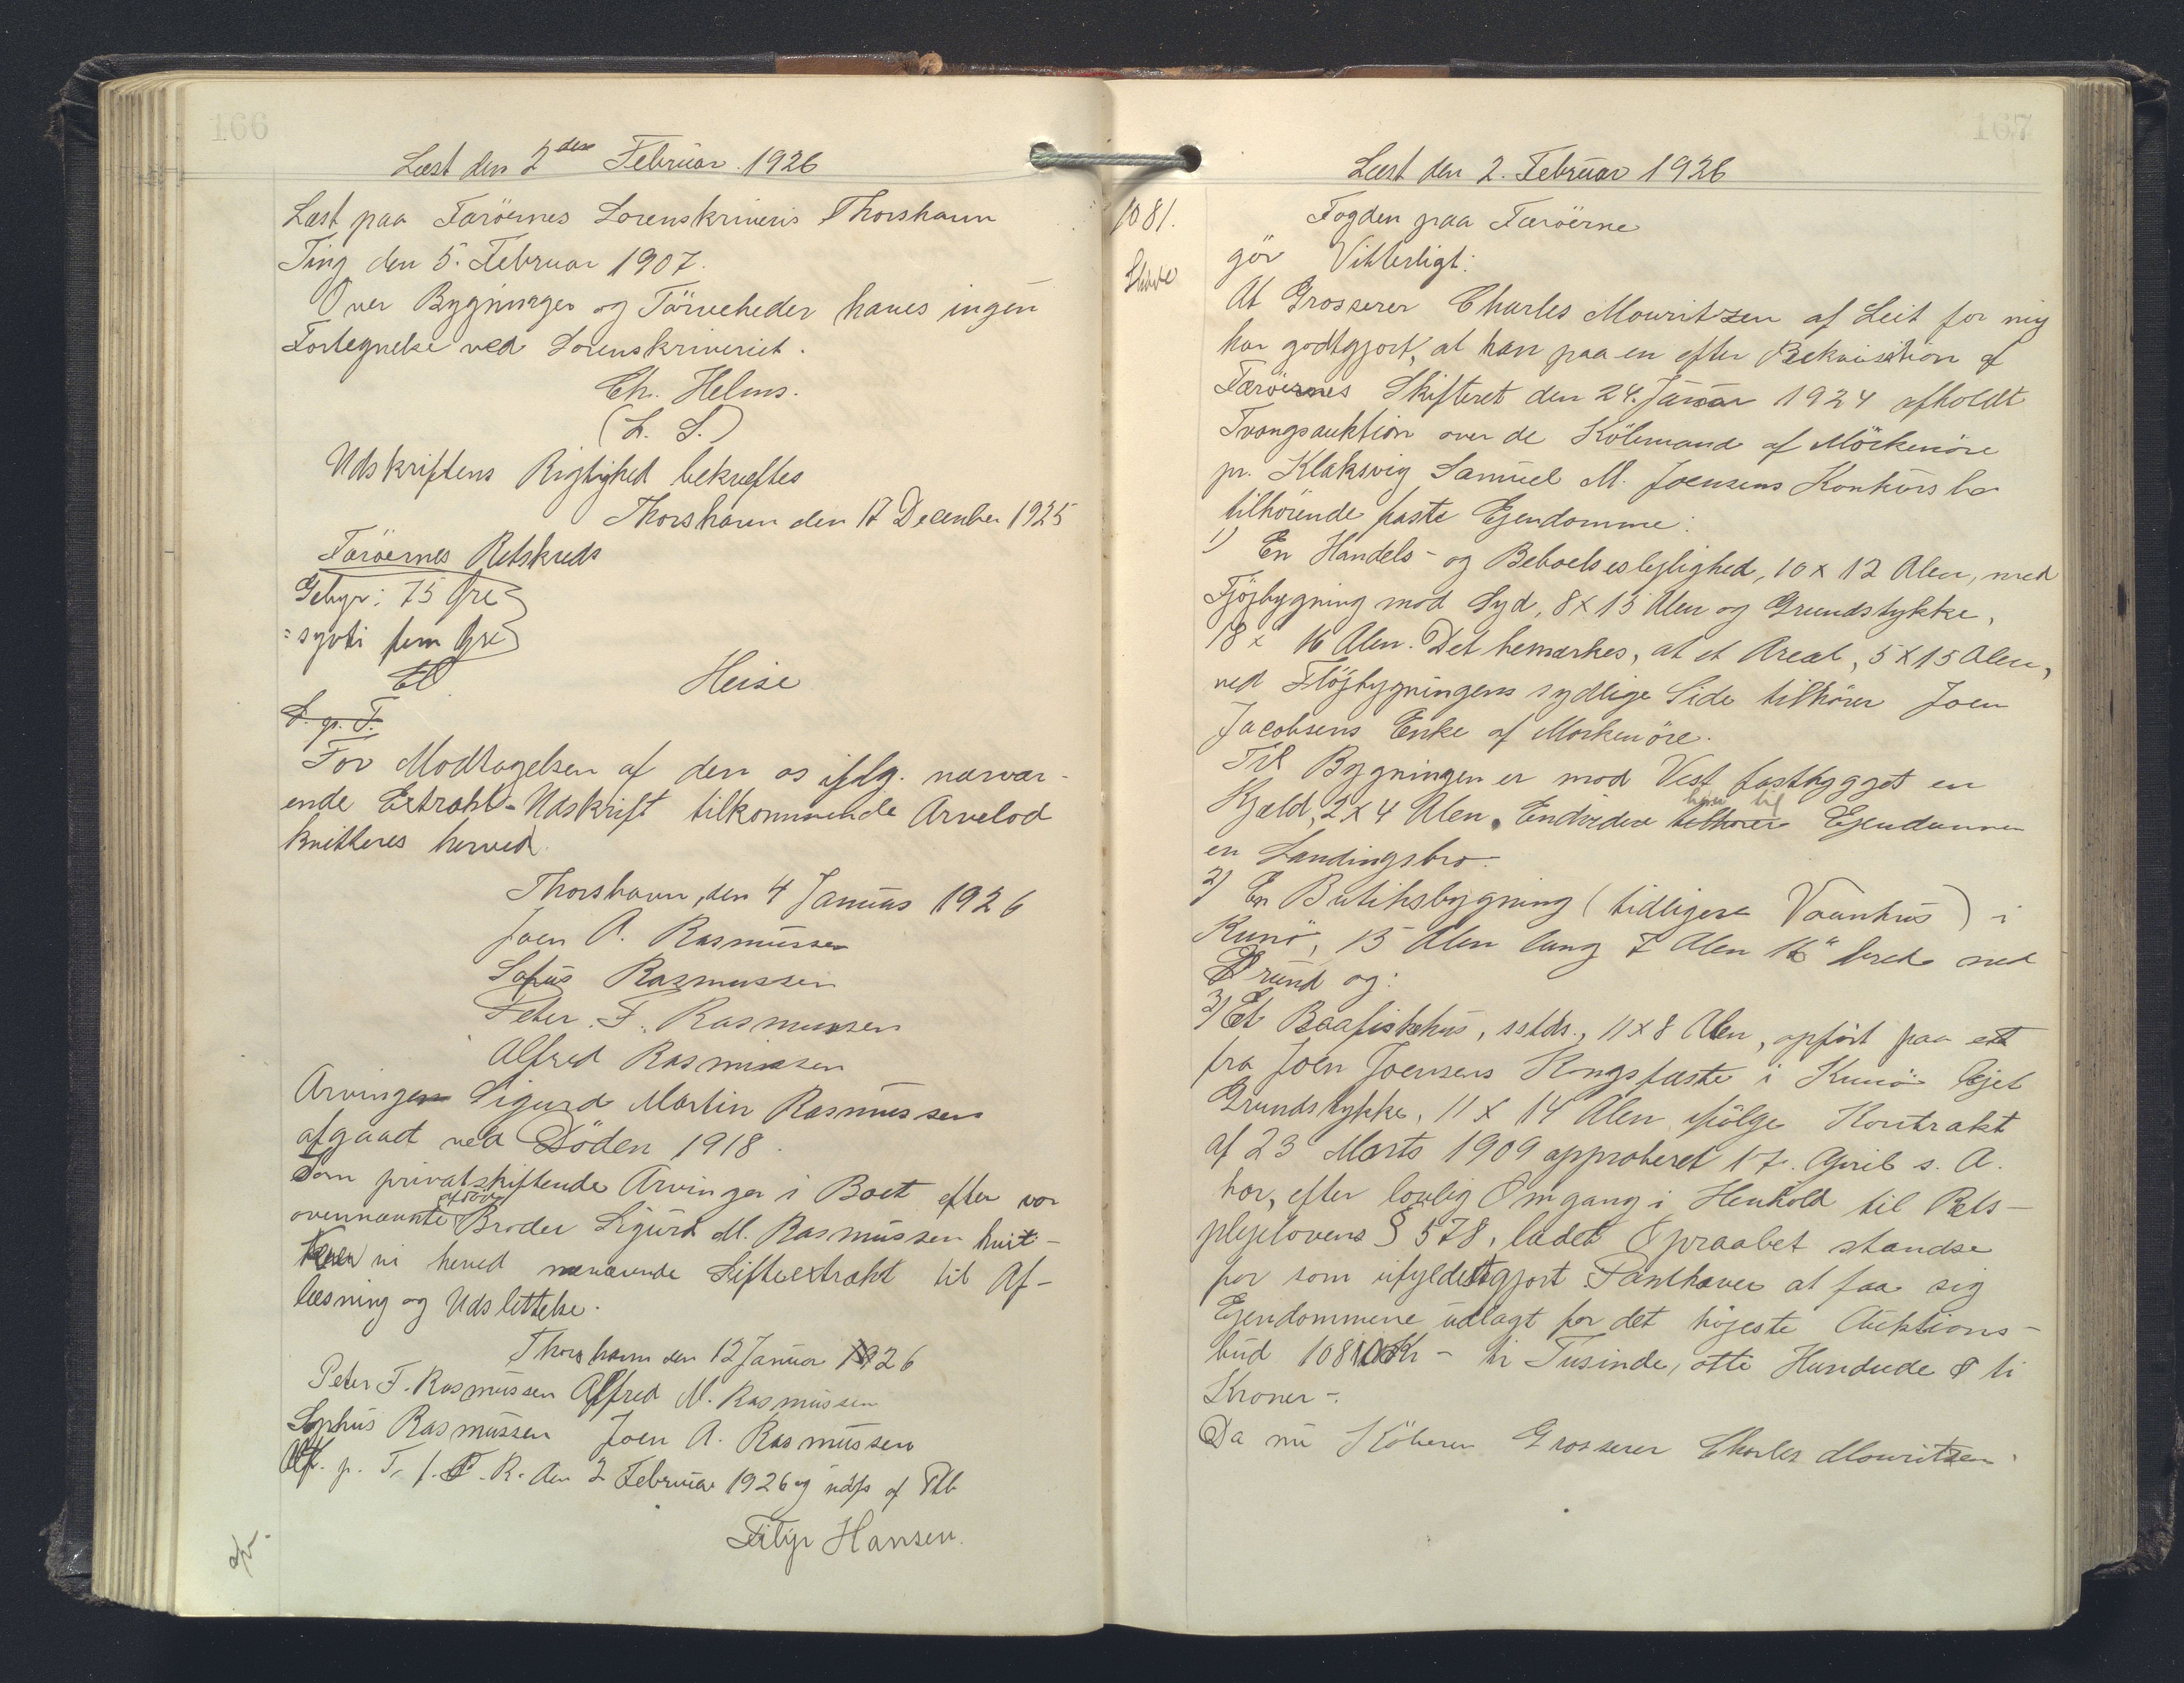 166
Læst den 2den Februar 1926
Læst paa Færöernes Sorenskriveris Thorshavn
Ting den 5. Februar 1907.
Over Bygninger og Törveheder haves ingen
Fortegnelse ved Sorenskriveriet.
Ch. Helms.
(L. S.)
Udskriftens Rigtighed bekræftes
Thorshavn den 17 December 1925
Færöernes Retskreds
Gebyr: 75 Øre
= syvti fem Øre
Heise
D. p. T.
For Modtagelsen af den os iflg. nærvær-
ende Extrakt-Udskrift tilkommende Arvelod
kvitteres herved.
Thorshavn, den 4 Januar 1926
Joen A. Rasmussen
Sofus Rasmussen
Peter F. Rasmussen
Alfred Rasmussen
Arvingen Sigurd Martin Rasmussen
afgaaet ved Döden 1918.
Som privatskiftende Arvinger i Boet efter vor
ovennævnte afdöde Broder Sigurd M. Rasmussen kvit-
terer vi herved nærværende Skifteextrakt til Af-
læsning og Udslettelse.
Thorshavn den 12 Januar 1926
Peter F. Rasmussen Alfred M. Rasmussen
Sophus Rasmussen Joen A. Rasmussen
Afl. p. T. f. F. R. den 2 Februar 1926 og uds af Ptb
Hansen.
167
Læst den 2. Februar 1926
1081.
Skøde
Fogden paa Færöerne
gör Vitterligt:
At Grosserer Charles Mouritzen af Leit for mig
har godtgjort, at han paa en efter Rekvisition af
Færöernes Skifteret den 24. Januar 1924 afholdt
Tvangsauktion over de Köbmand af Mörkenöre
pr. Klaksvig Samuel M. Joensens Konkurs bo
tilhörende faste Ejendomme:
1) En Handels- og Beboelseslejlighed, 10 x 12 Alen, med
Flöjbygning mod Syd, 8 x 15 Alen og Grundstykke,
18 x 16 Alen. Det bemærkes, at et Areal, 5 x 15 Alen,
ved Flöjbygningens sydlige Side tilhörer Joen
Jacobsens Enke af Morkenöre.
Til Bygningen er mod Vest fastbygget en
Kjæld, 2 x 4 Alen. Endvidere tilhörer hörer til Ejendommen
en Landingsbro.
2) En Butiksbygning (tidligere Vaanhus) i
Kunö, 15 Alen lang 7 Alen 16" bred med
Grund og:
3) Et Baafiskehus, sstds., 11 x 8 Alen, opfört paa et
fra Joen Joensens Kongsfæste i Kunö lejet
Grundstykke, 11 x 14 Alen ifölge Kontrakt
af 23 Marts 1909 approberet 17. April s. A.
har, efter lovlig Omgang i Henhold til Rets-
plejelovens § 578, ladet Opraabet standse
for som ufyldestgjort Panthaver at faa sig
Ejendommene udlagt for det höjeste Auktions-
bud 10810 Kr - ti Tusinde, otte Hundrede & ti
Kroner -.
Da nu Köberen Grosserer Charles Mouritzen